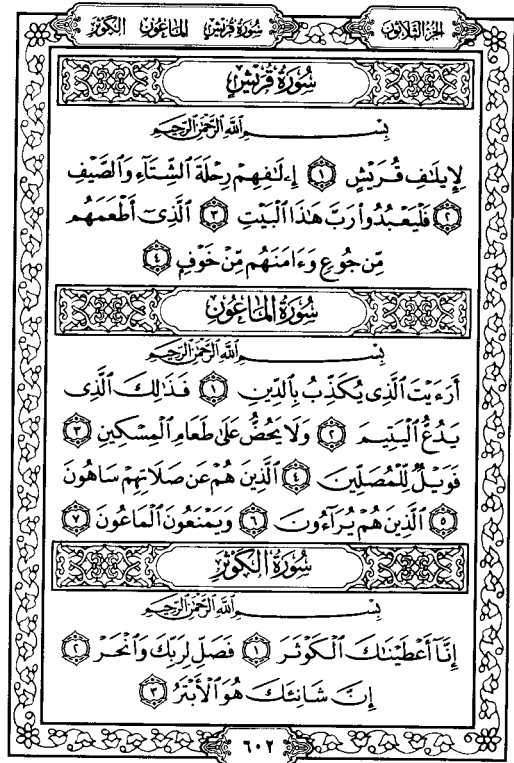 سُورَةُ قُرَيْشٍ المَاعُونِ الكَوْثَرِ الجُزْءُ الثَّلَاثُونَ
سُورَةُ قُرَيْشٍ
بِسْمِ ٱللَّهِ ٱلرَّحْمَٰنِ ٱلرَّحِيمِ
لِإِيلَٰفِ قُرَيْشٍ ١ إِۦلَٰفِهِمْ رِحْلَةَ ٱلشِّتَآءِ وَٱلصَّيْفِ
٢ فَلْيَعْبُدُوا۟ رَبَّ هَٰذَا ٱلْبَيْتِ ٣ ٱلَّذِىٓ أَطْعَمَهُم
مِّن جُوعٍ وَءَامَنَهُم مِّنْ خَوْفٍ ٤
سُورَةُ المَاعُونِ
بِسْمِ ٱللَّهِ ٱلرَّحْمَٰنِ ٱلرَّحِيمِ
أَرَءَيْتَ ٱلَّذِى يُكَذِّبُ بِٱلدِّينِ ١ فَذَٰلِكَ ٱلَّذِى
يَدُعُّ ٱلْيَتِيمَ ٢ وَلَا يَحُضُّ عَلَىٰ طَعَامِ ٱلْمِسْكِينِ ٣
فَوَيْلٌ لِّلْمُصَلِّينَ ٤ ٱلَّذِينَ هُمْ عَن صَلَاتِهِمْ سَاهُونَ
٥ ٱلَّذِينَ هُمْ يُرَآءُونَ ٦ وَيَمْنَعُونَ ٱلْمَاعُونَ ٧
سُورَةُ الكَوْثَرِ
بِسْمِ ٱللَّهِ ٱلرَّحْمَٰنِ ٱلرَّحِيمِ
إِنَّآ أَعْطَيْنَٰكَ ٱلْكَوْثَرَ ١ فَصَلِّ لِرَبِّكَ وَٱنْحَرْ ٢
إِنَّ شَانِئَكَ هُوَ ٱلْأَبْتَرُ ٣
٦٠٢